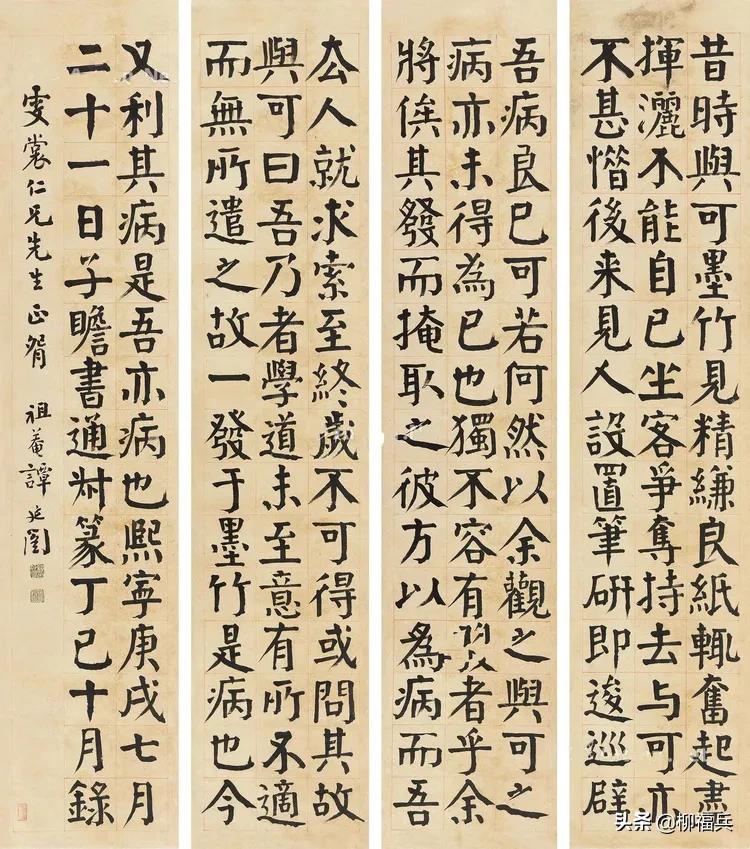 昔時與可墨竹見精縑良紙輒奮起
揮灑不能自已坐客爭奪持去与可亦
不甚惜後来見人設置筆研即逡巡辟
吾病良已可若何然以余觀之與可之
病亦未得為已也獨不容有者乎余
將俟其發而掩取之彼方以為病而吾
厺人就求索至終歲不可得或問其故
與可曰吾乃者學道未至意有所不適
而無所遣之故一發于墨竹是病也今
又利其病是吾亦病也熙寧庚戌七月
二十一日子瞻書通尗篆丁巳十月錄
雯裳仁兄先生正 祖菴譚延闓
头条 @柳福兵